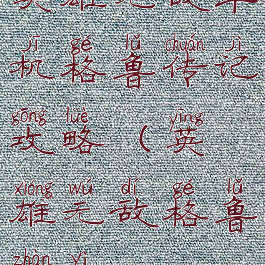 jī gé lǔ chuán jì
机格鲁传记
gōng lüè yīng
攻略（英
xióng wú dí gé lǔ
雄无敌格鲁